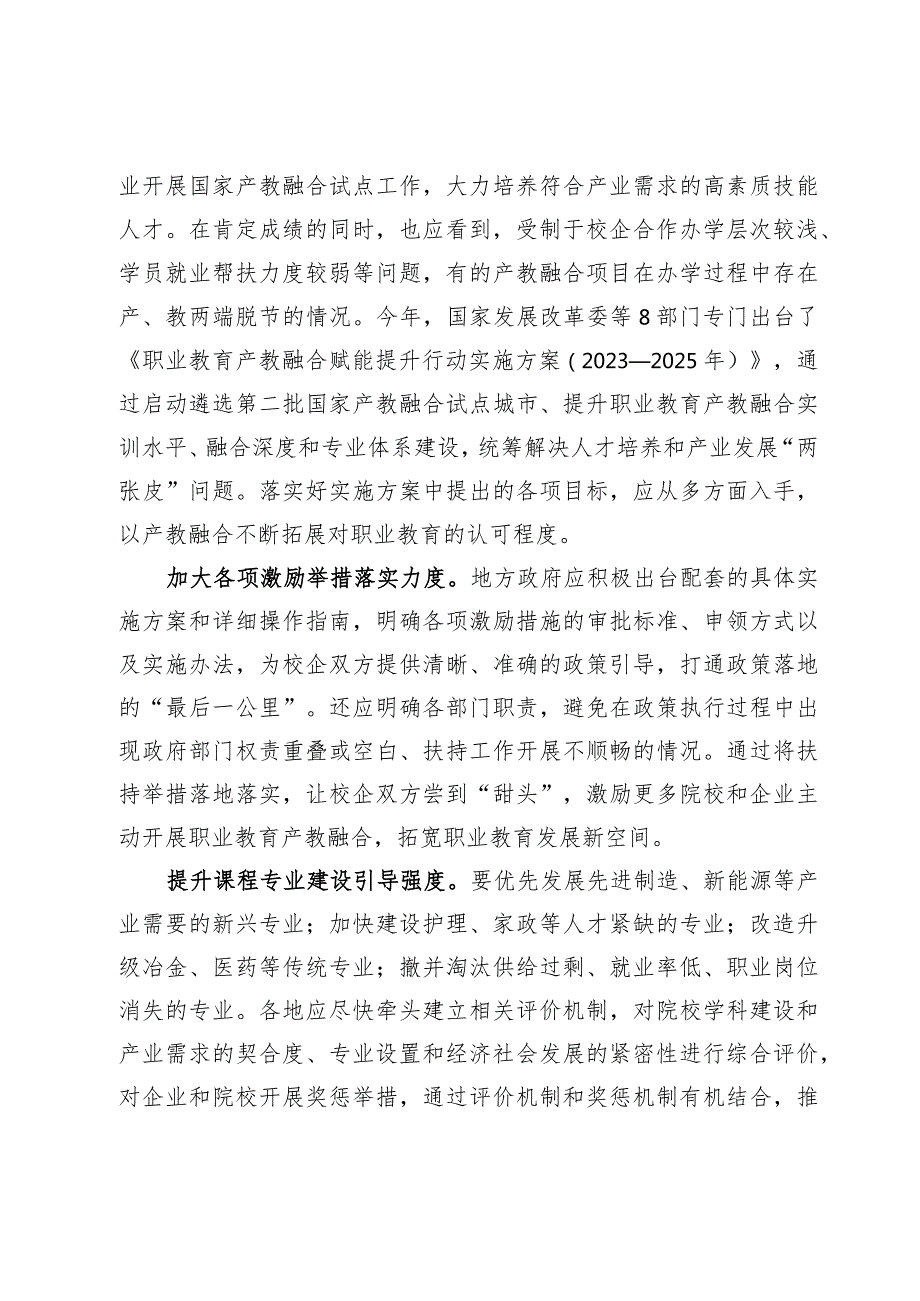 业开展国家产教融合试点工作，大力培养符合产业需求的高素质技能
人才。在肯定成绩的同时，也应看到，受制于校企合作办学层次较浅、
学员就业帮扶力度较弱等问题，有的产教融合项目在办学过程中存在
产、教两端脱节的情况。今年，国家发展改革委等8部门专门出台了
《职业教育产教融合赋能提升行动实施方案（2023—2025年）》，通
过启动遴选第二批国家产教融合试点城市、提升职业教育产教融合实
训水平、融合深度和专业体系建设，统筹解决人才培养和产业发展“两
张皮”问题。落实好实施方案中提出的各项目标，应从多方面入手，
以产教融合不断拓展对职业教育的认可程度。
加大各项激励举措落实力度。地方政府应积极出台配套的具体实
施方案和详细操作指南，明确各项激励措施的审批标准、申领方式以
及实施办法，为校企双方提供清晰、准确的政策引导，打通政策落地
的“最后一公里”。还应明确各部门职责，避免在政策执行过程中出
现政府部门权责重叠或空白、扶持工作开展不顺畅的情况。通过将扶
持举措落地落实，让校企双方尝到“甜头”，激励更多院校和企业主
动开展职业教育产教融合，拓宽职业教育发展新空间。
提升课程专业建设引导强度。要优先发展先进制造、新能源等产
业需要的新兴专业；加快建设护理、家政等人才紧缺的专业；改造升
级冶金、医药等传统专业；撤并淘汰供给过剩、就业率低、职业岗位
消失的专业。各地应尽快牵头建立相关评价机制，对院校学科建设和
产业需求的契合度、专业设置和经济社会发展的紧密性进行综合评价，
对企业和院校开展奖惩举措，通过评价机制和奖惩机制有机结合，推